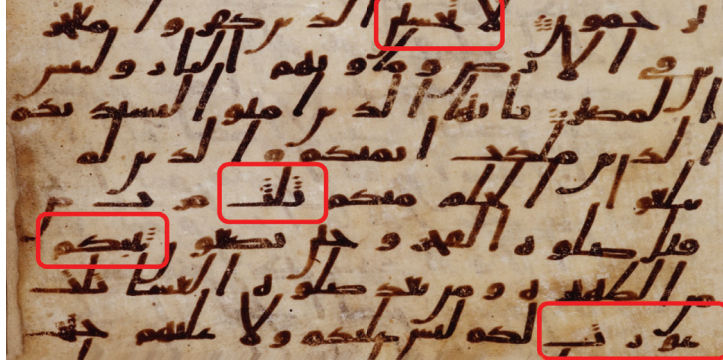 ترحمون لا تحسبن الذين كفروا معجـ
زين في الارض وماويهم النار ولبئس
المصير يايها الذين امنوا ليستذنكم
الذين ملكت ايمنكم والذين لم
يبلغوا الحلم منكم ثلث مرت من
قبل صلوه الفجر وحين تضعون ثيبكم
من الظهيره ومن بعد صلوه العشا ثلث
عورت لكم ليس عليكم ولا عليهم جنح